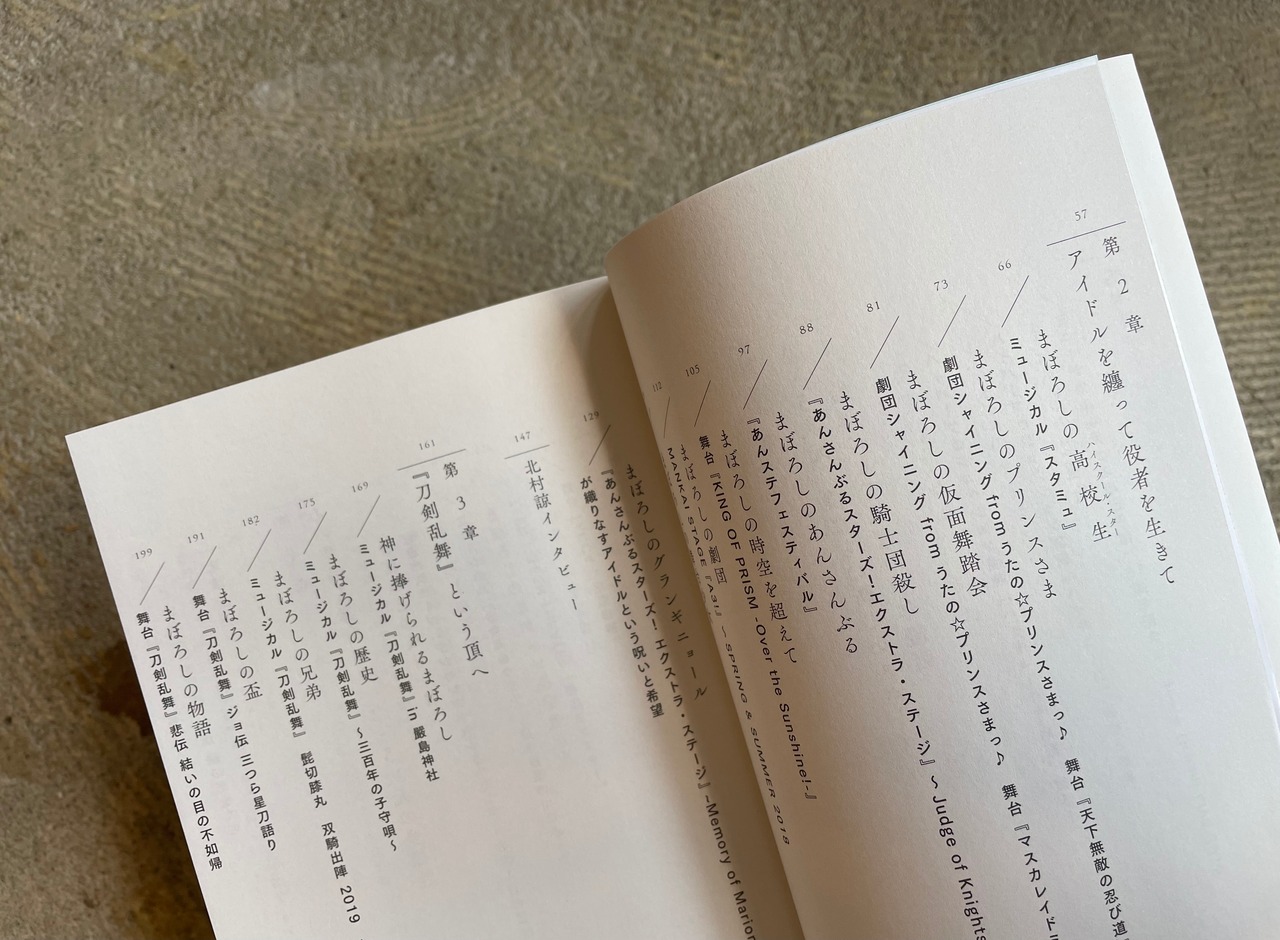 57
第2章
アイドルを纏って役者を生きて
66
まぼろしの高校生
ハイスクール・スター
ミュージカル『スタミュ』
73
まぼろしのプリンスさま
劇団シャイニング from うたの☆プリンスさまっ♪ 舞台『天下無敵の忍び道
81
まぼろしの仮面舞踏会
劇団シャイニング from うたの☆プリンスさまっ♪ 舞台『マスカレイドミ
88
まぼろしの騎士団殺し
『あんさんぶるスターズ!エクストラ・ステージ』~Judge of Knights
97
まぼろしのあんさんぶる
『あんステフェスティバル』
105
まぼろしの時空を超えて
舞台『KING OF PRISM -Over the Sunshine!-』
112
まぼろしの劇団
MANKAI STAGE『A3!』~SPRING & SUMMER 2018
129
まぼろしのグランギニョール
『あんさんぶるスターズ! エクストラ・ステージ』-Memory of Marion
が織りなすアイドルという呪いと希望
147
北村諒インタビュー
161
第3章
『刀剣乱舞』という頂へ
169
神に捧げられるまぼろし
ミュージカル『刀剣乱舞』in 嚴島神社
175
まぼろしの歴史
ミュージカル『刀剣乱舞』 ~三百年の子守唄~
182
まぼろしの兄弟
ミュージカル『刀剣乱舞』 髭切膝丸 双騎出陣 2019
191
まぼろしの盃
舞台『刀剣乱舞』ジョ伝 三つら星刀語り
199
まぼろしの物語
舞台『刀剣乱舞』悲伝 結いの目の不如帰